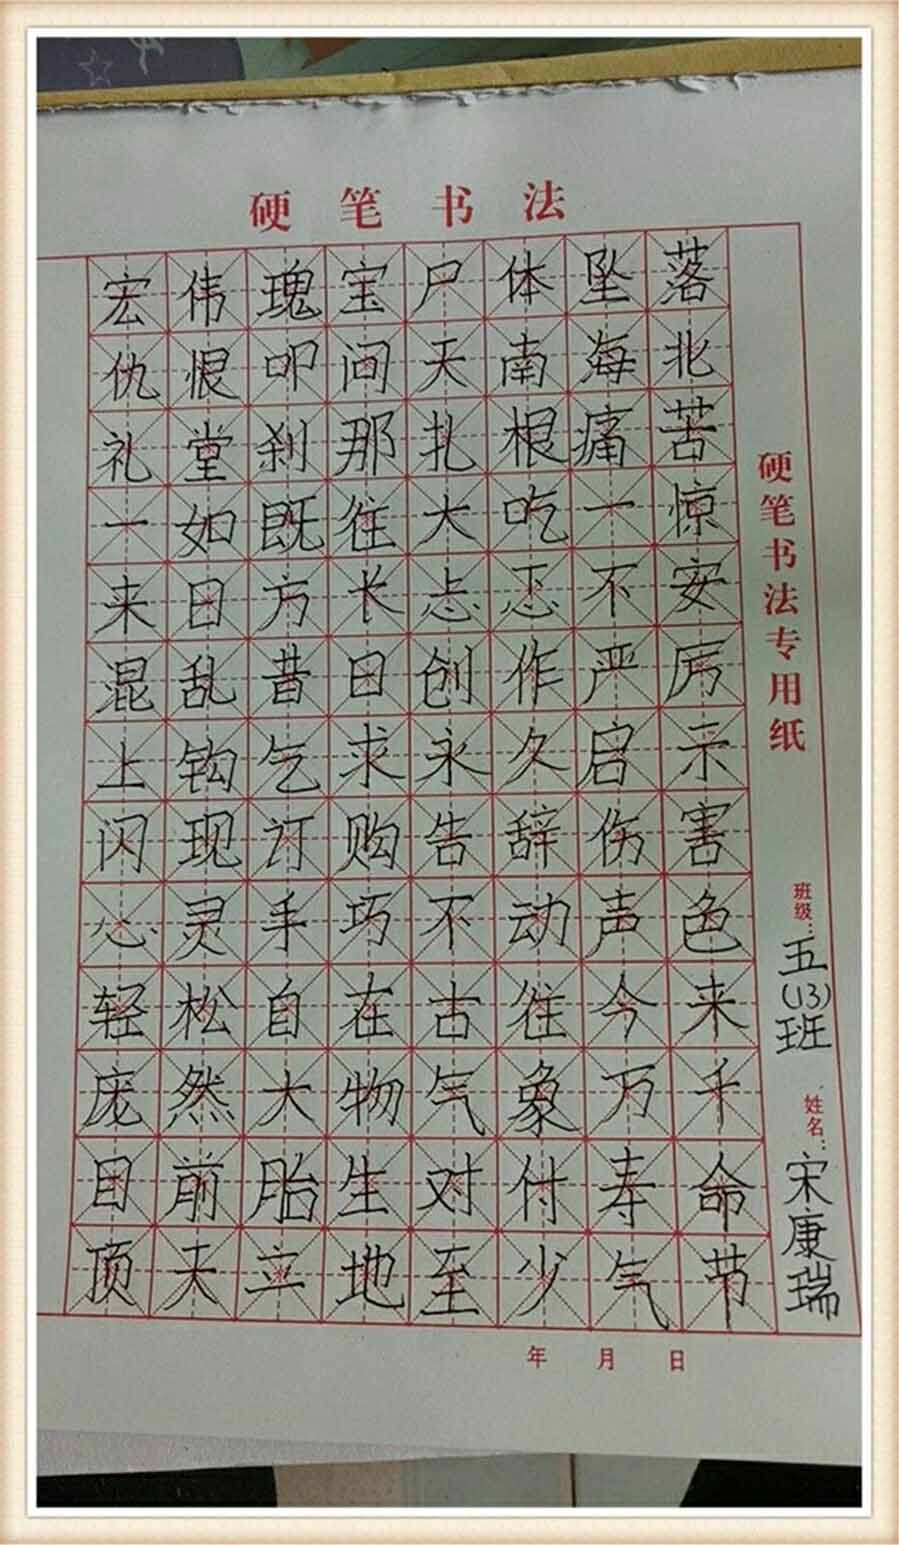 硬笔书法
宏伟瑰宝尸体坠落
仇恨叩问天南海北
礼堂刹那扎根痛苦
一如既往大吃一惊
来日方长忐忑不安
混乱昔日创作严厉
上钩乞求永久启示
闪现订购告辞伤害
心灵手巧不动声色
轻松自在古往今来
庞然大物气象万千
目前胎生对付寿命
顶天立地至少气节
硬笔书法专用纸
班级：五(13)班
姓名：宋康瑞
年 月 日